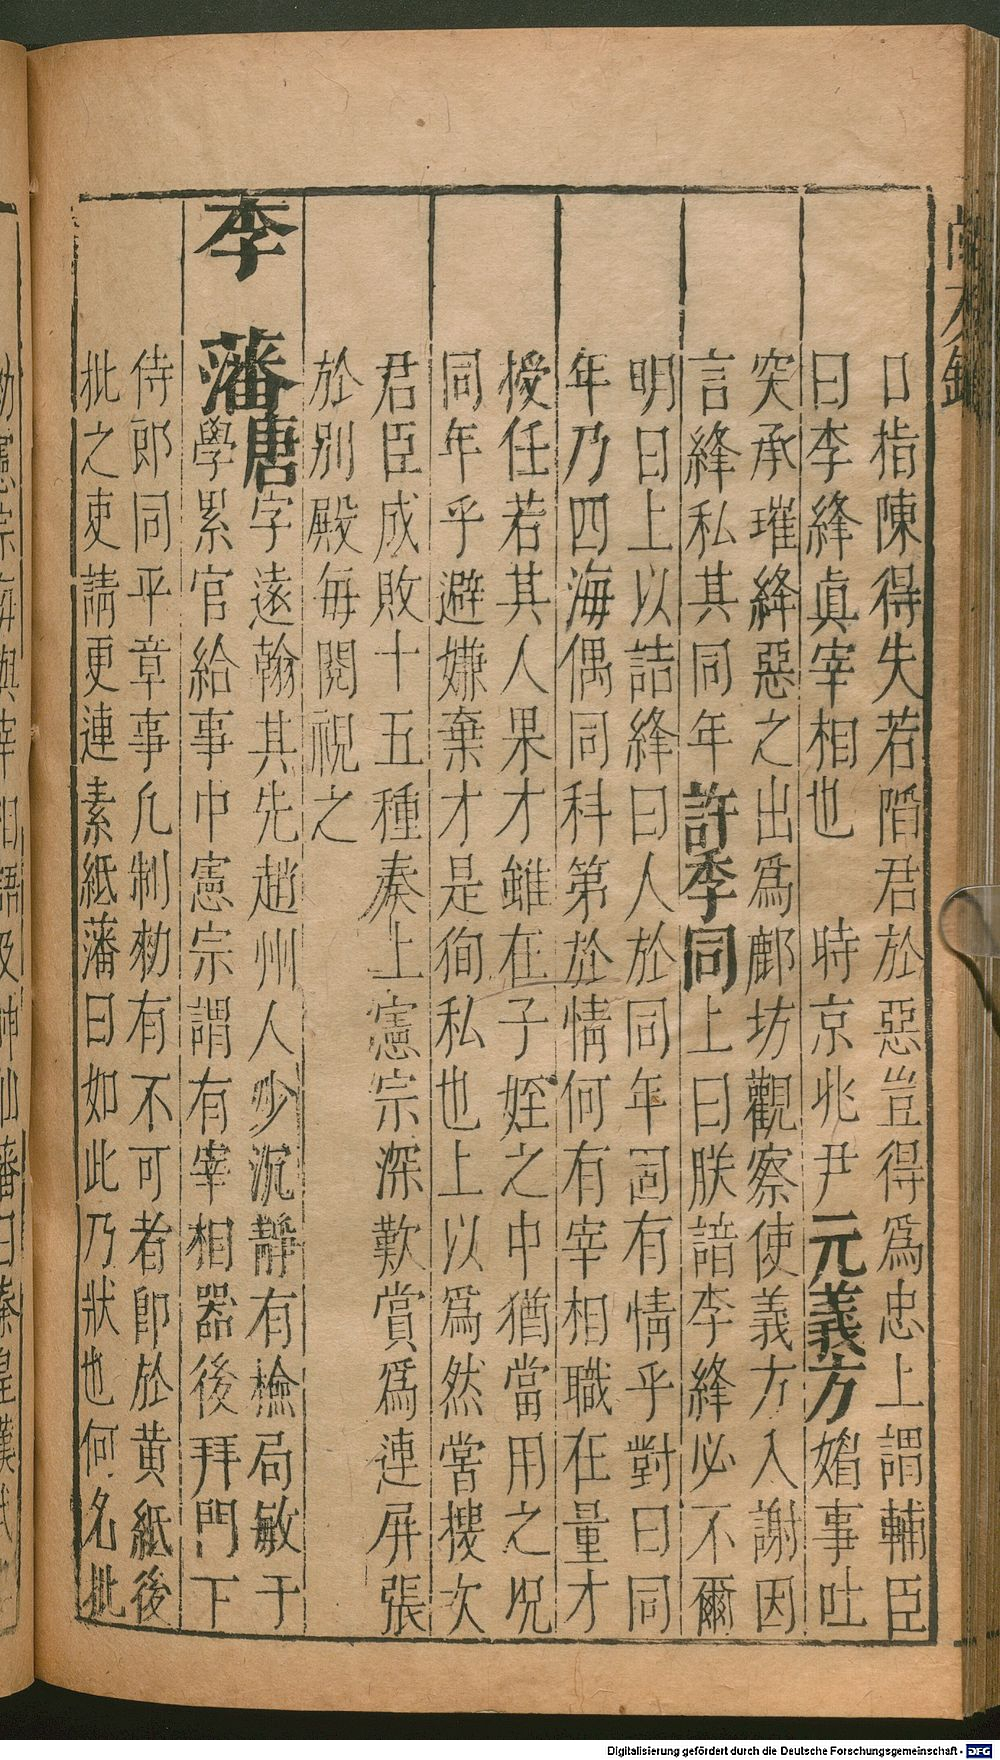 口指陳得失若陷君於惡豈得爲忠上謂輔臣
曰李絳眞宰相也　時京兆尹元義方媚事吐
突承璀絳惡之出爲鄜坊觀察使義方入謝因
言絳私其同年許季同上曰朕諳李絳必不爾
明日上以詰絳曰人於同年固有情乎對曰同
年乃四海偶同科第於情何有宰相職在量才
授任若其人果才雖在子姪之中猶當用之况
同年乎避嫌棄才是徇私也上以爲然嘗摟次
君臣成敗十五種奏上憲宗深歎賞爲連屏張
於別殿每閱視之
李　藩唐字遠翰其先趙州人少沉靜有檢局敏于
學累官給事中憲宗謂有宰相器後拜門下
侍郎同平章事凡制勑有不可者卽於黄紙後
批之吏請更連素紙藩曰如此乃狀也何名批
Digitalisierung gefördert durch die Deutsche Forschungsgemeinschaft - DFG